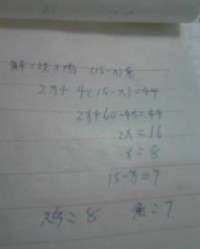 解：设x鸡 (15-x)兔
2x+4(15-x)=44
2x+60-4x=44
2x=16
x=8
15-x=7
鸡=8 兔=7